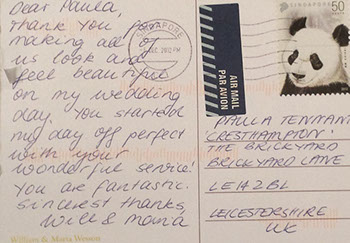 Dear Paula,
Thank you for
making all of
us look and
feel beautiful
on my wedding
day. You started
my day off perfect
with your
wonderful service!
You are fantastic.
Sincerest thanks
Will & Maria
William & Maria Weston
SINGAPORE
DEC 2012 PM
AIR MAIL
PAR AVION
50
PAULA TENNANT
'CRESTHAMPTON'
THE BRICKYARD
BRICKYARD LANE
LE14 2BL
LEICESTERSHIRE
UK